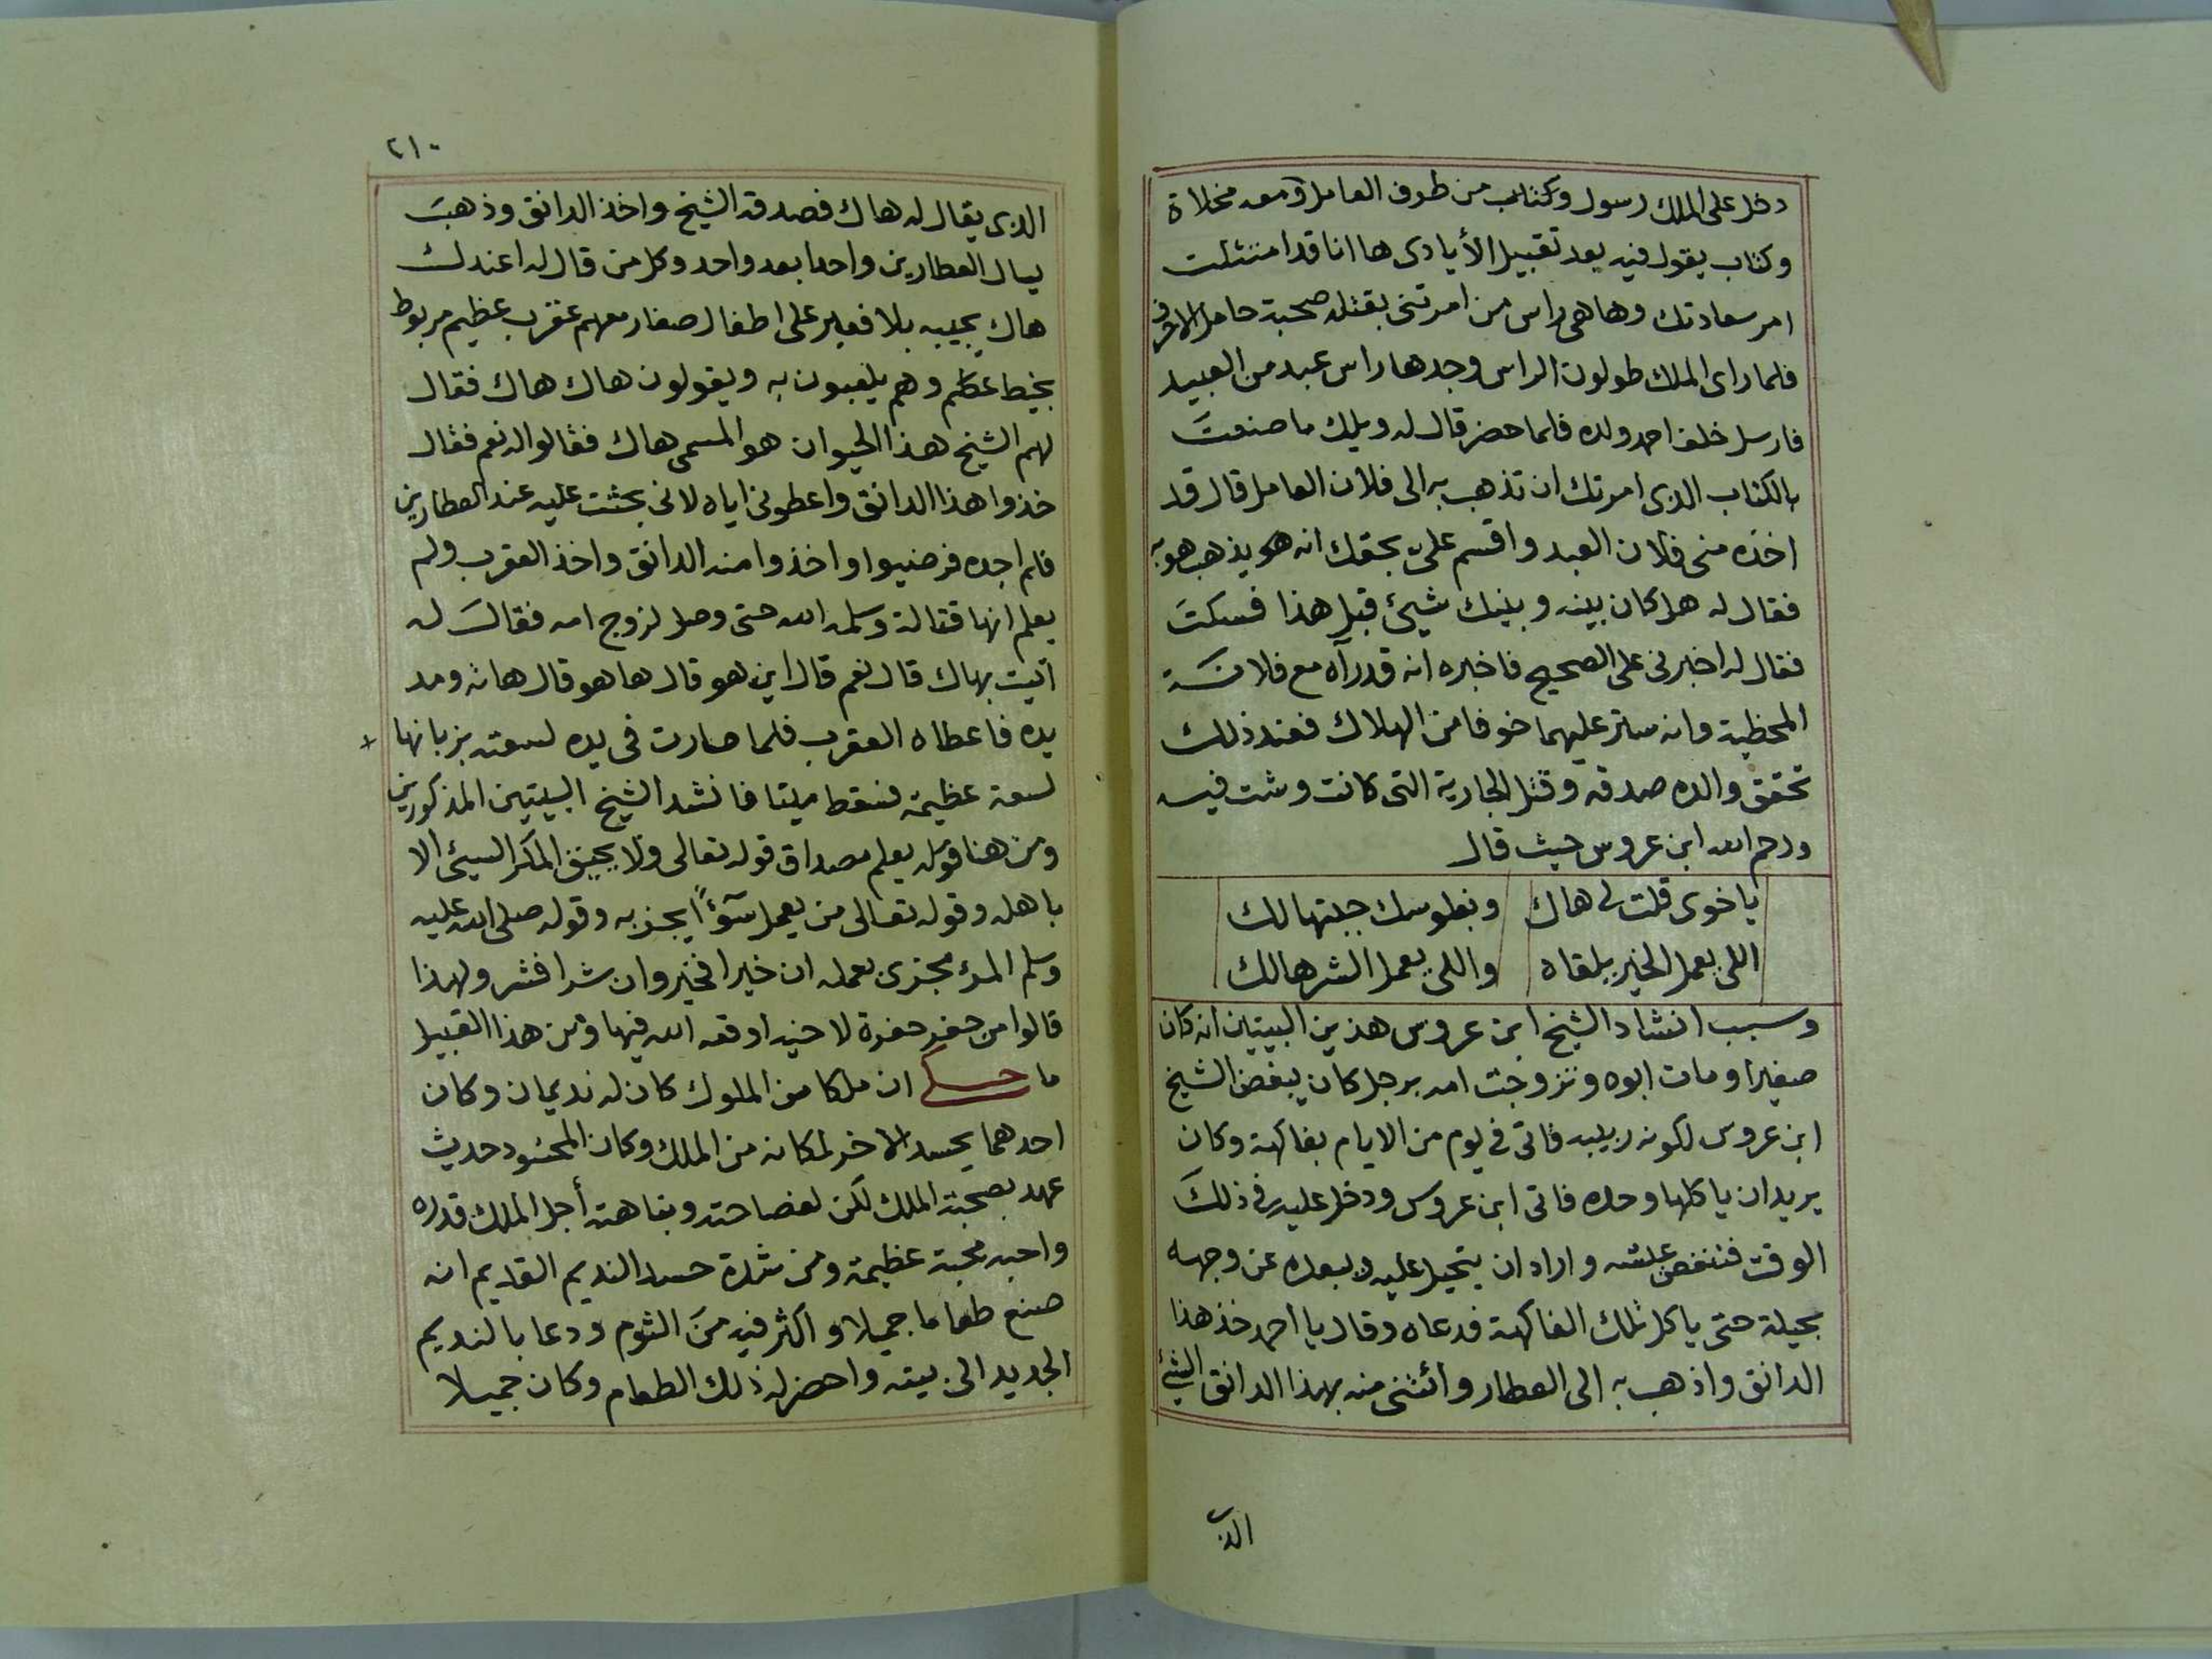 دخل على الملك رسول وكتاب من طرف العامل ومعه مخلاة
وكتاب يقول فيه بعد تقبيل الأيادى ها انا قد امتثلت
امر سعادتك وها هى راس من امرتنى بقتله صحبة حامل الاحرف
فلما راى الملك طولون الراس وجدها راس عبد من العبيد
فارسل خلف احمد ولده فلما حضر قال له ويلك ما صنعت
بالكتاب الذى امرتك ان تذهب به الى فلان العامل قال قد
اخذه منى فلان العبد واقسم علىّ بحقك انه هو يذهب هو به
فقال له هل كان بينه وبينك شيئ قبل هذا فسكت
فقال له اخبرنى على الصحيح فاخبره انه قد رآه مع فلانة
المحظية وانه ستر عليهما خوفا من الهلاك فعند ذلك
تحقق والده صدقه وقتل الجارية التى كانت وشت فيه
ورحم الله ابن عروس حيث قال
ياخوى قلت لى هاك وبطوسك جبتهالك
اللى يعمل الخير يلقاه واللى يعمل الشر هالك
وسبب انشاد الشيخ ابن عروس هذين البيتين انه كان
صغيرا ومات ابوه وتزوجت امه برجل كان يبغض الشيخ
ابن عروس لكونه ربيبه فاتى فى يوم من الايام بفاكهة وكان
يريد ان ياكلها وحده فاتى ابن عروس ودخل عليه فى ذلك
الوقت فتنغص عيشه واراد ان يتحيل عليه ويبعده عن وجهه
بحيلة حتى ياكل تلك الفاكهة فدعاه وقال يا احمد خذ هذا
الدانق واذهب به الى العطار وائتنى منه بهذا الدانق الشيئ
الذى
٢١٠
الذى يقال له هاك فصدقه الشيخ واخذ الدانق وذهب
يسال العطارين واحدا بعد واحد وكل من قال له اعندك
هاك يجيبه بلا فعبر على اطفال صغار معهم عقرب عظيم مربوط
بخيط عظيم وهم يلعبون به ويقولون هاك هاك فقال
لهم الشيخ هذا الحيوان هو المسمى هاك فقالوا له نعم فقال
خذوا هذا الدانق واعطونى اياه لانى بحثت عليه عند العطارين
فلم اجده فرضيوا واخذوا منه الدانق واخذ العقرب ولم
يعلم انها قتالة وسلمه الله حتى وصل لزوج امه فقال له
اتيت بهاك قال نعم قال اين هو قال ها هو قال هاته ومد
يده فاعطاه العقرب فلما صارت فى يده لسعته بزبانها
لسعة عظيمة فسقط ميتا فانشد الشيخ البيتين المذكورين
ومن هنا قوله يعلم مصداق قوله تعالى ولا يحيق المكر السيئ الا
باهله وقوله تعالى من يعمل سوءًا يجز به وقوله صلى الله عليه
وسلم المرء مجزى بعمله ان خيرا فخير وان شرا فشر ولهذا
قالوا من حفر حفرة لاخيه اوقعه الله فيها ومن هذا القبيل
ما حكى ان ملكا من الملوك كان له نديمان وكان
احدهما يحسد الاخر لمكانه من الملك وكان المحسود حديث
عهد بصحبة الملك لكن لفصاحته ونباهته أجل الملك قدره
واحبه محبة عظيمة ومن شدة حسد النديم القديم انه
صنع طعاما جميلا واكثر فيه من الثوم ودعا بالنديم
الجديد الى بيته واحضر له ذلك الطعام وكان جميلا